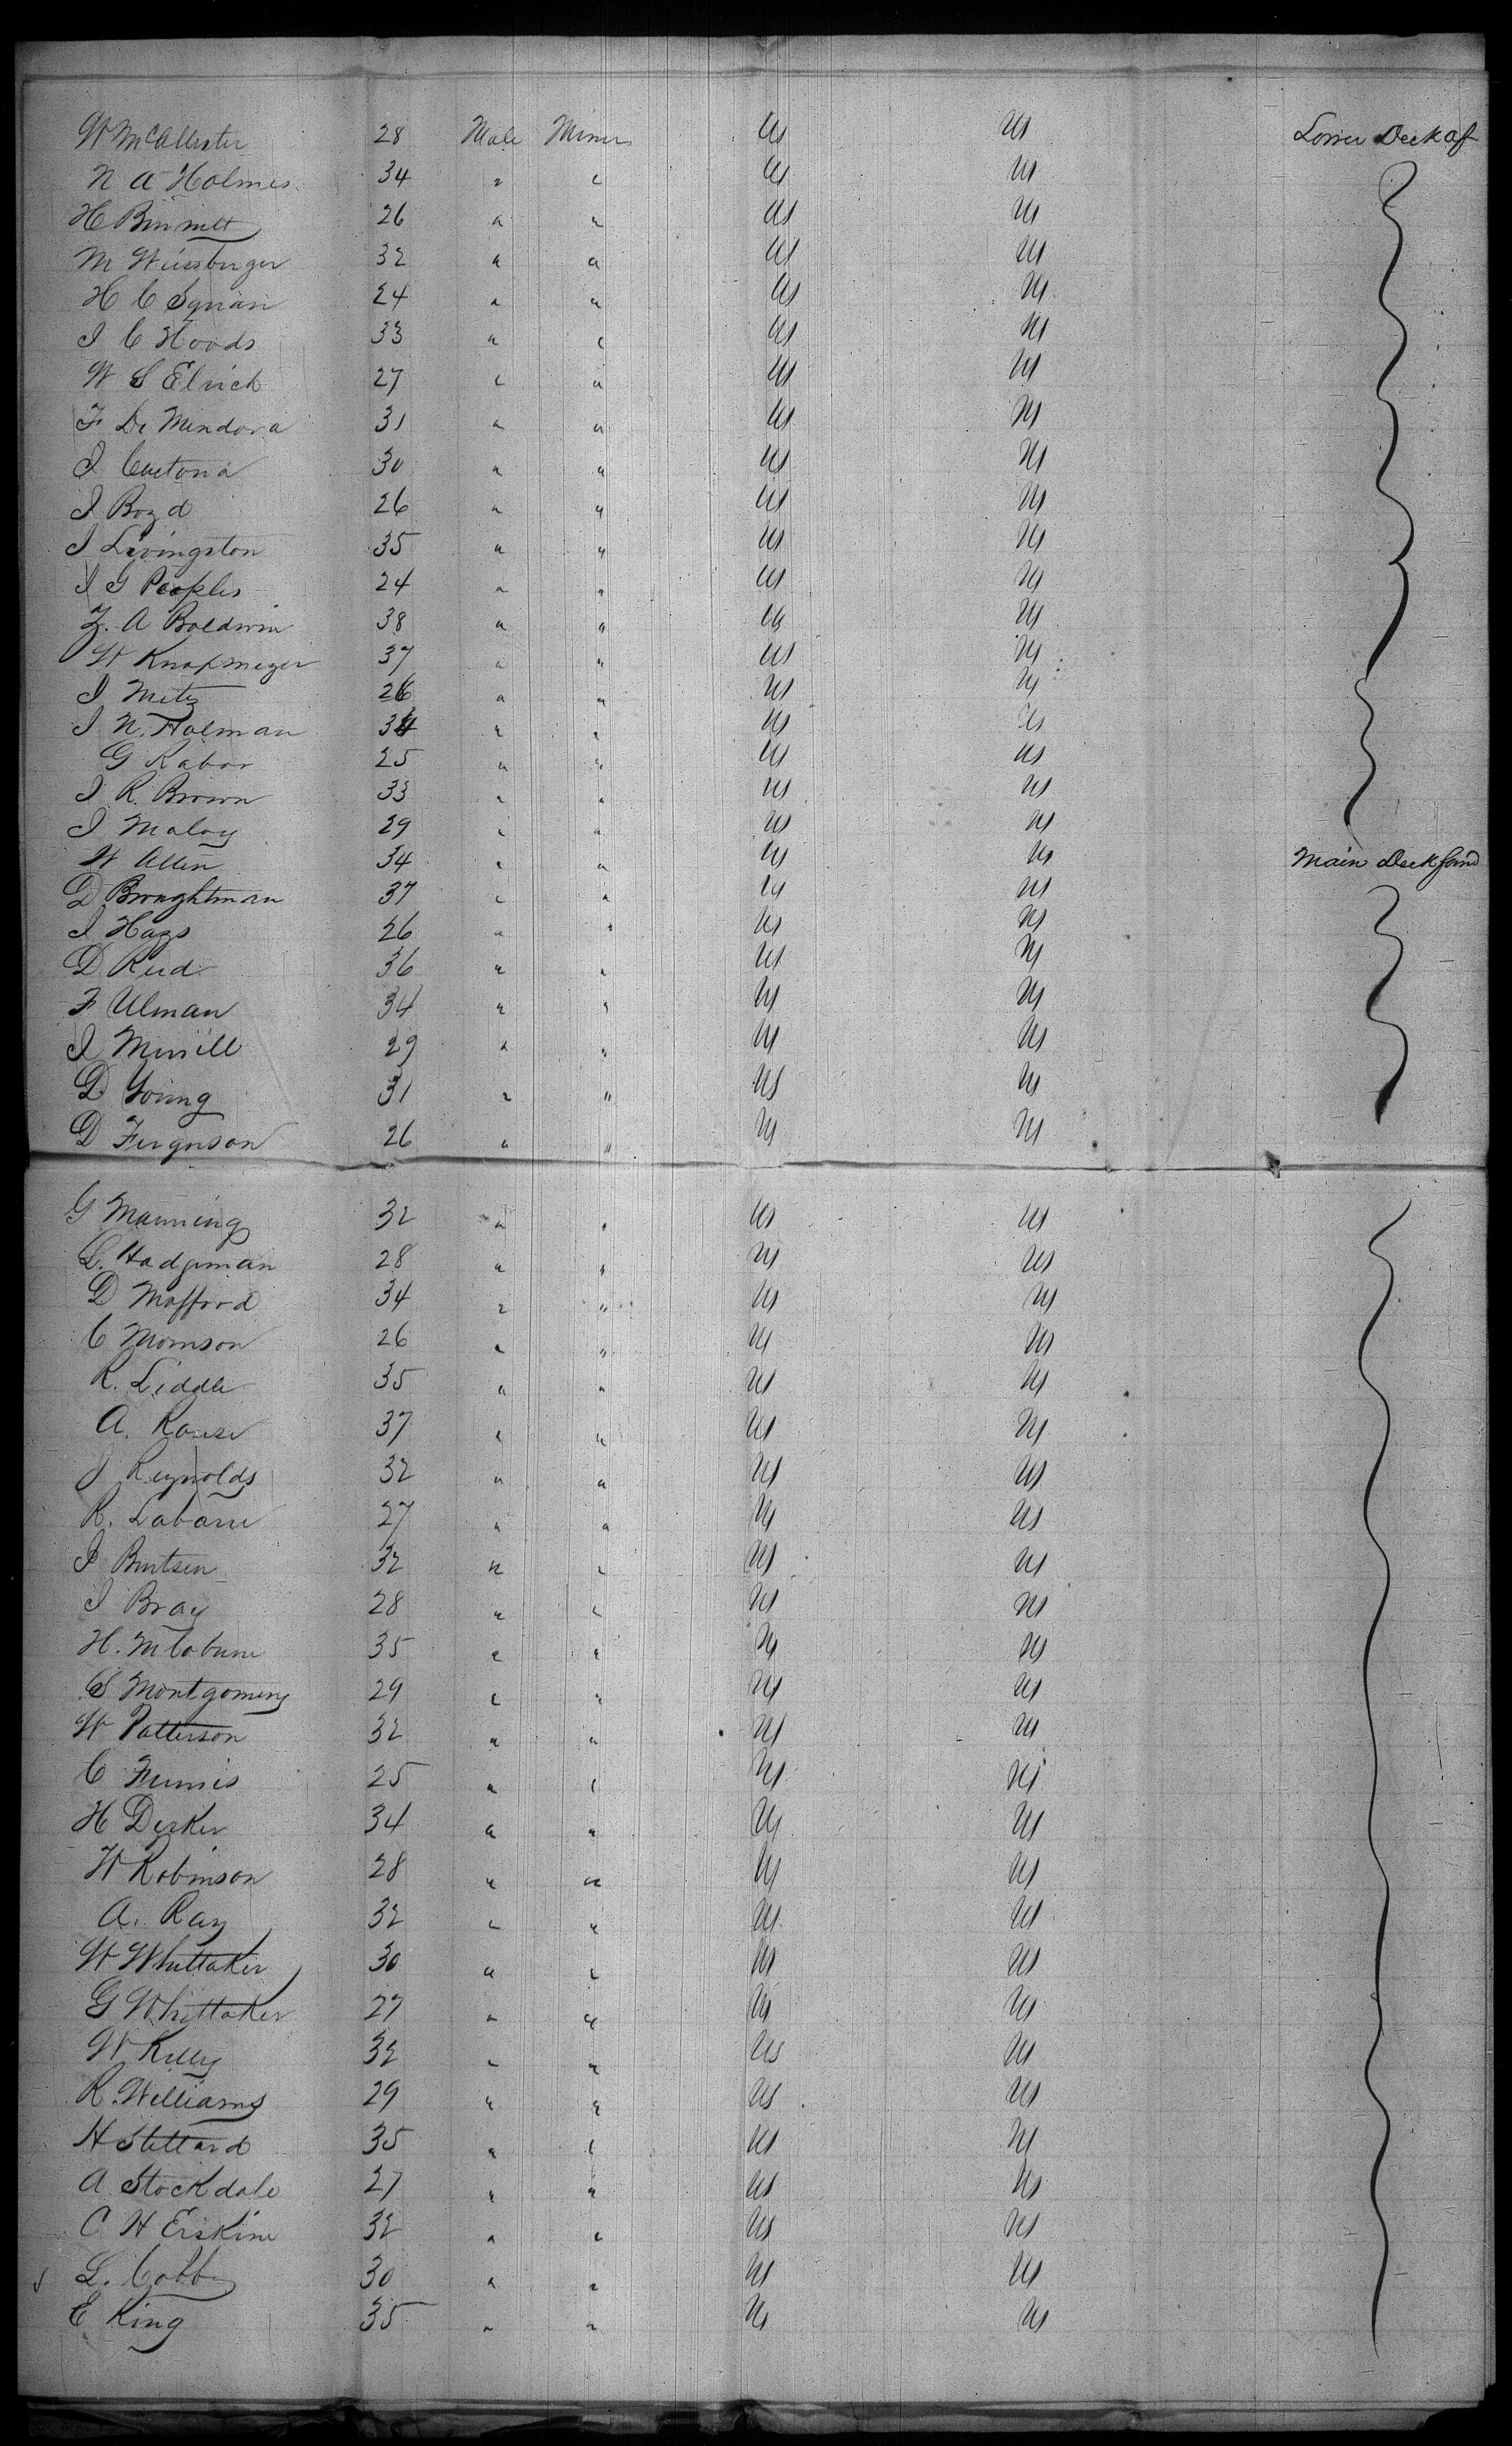 W McAllester 28 Male Miner US US Lower Deck aft
N A Holmes 34 " " US US
H Binnett 26 " " US US
M Weissburger 32 " " US US
H C Squan 24 " " US US
J C Woods 33 " " US US
W S Elrich 27 " " US US
F De Mendova 31 " " US US
J 30 " " US US
J Boyd 26 " " US US
J Livingston 35 " " US US
J G Peoples 24 " " US US
Z. A Baldwin 38 " " US US
W Knopmeyer 37 " " US US
J Metz 26 " " US US
J N. Holman 34 " " US US
G Rabor 25 " " US US
J R. Brown 33 " " US US
J Maloy 29 " " US US
W Allen 34 " " US US Main Deck
D Broughtman 37 " " US US
J Hays 26 " " US US
D Reed 36 " " US US
F Ulman 34 " " US US
J Merrill 29 " " US US
D Young 31 " " US US
D Ferguson 26 " " US US
G Manning 32 " " US US
L. Hodgeman 28 " " US US
D Mofford 34 " " US US
C Morrison 26 " " US US
R. Liddle 35 " " US US
A. Rouse 37 " " US US
J Reynolds 32 " " US US
R. Labarre 27 " " US US
J Burtsen 32 " " US US
J Bray 28 " " US US
H. 35 " " US US
S Montgomery 29 " " US US
W Patterson 32 " " US US
C 25 " " US US
H Derker 34 " " US US
W Robinson 28 " " US US
A. Ray 32 " " US US
W Whittaker 30 " " US US
G Whittaker 27 " " US US
W Kelly 32 " " US US
R. Williams 29 " " US US
H Stettard 35 " " US US
A Stockdale 27 " " US US
C H Erskine 32 " " US US
L. Cobb 30 " " US US
E King 35 " " US US